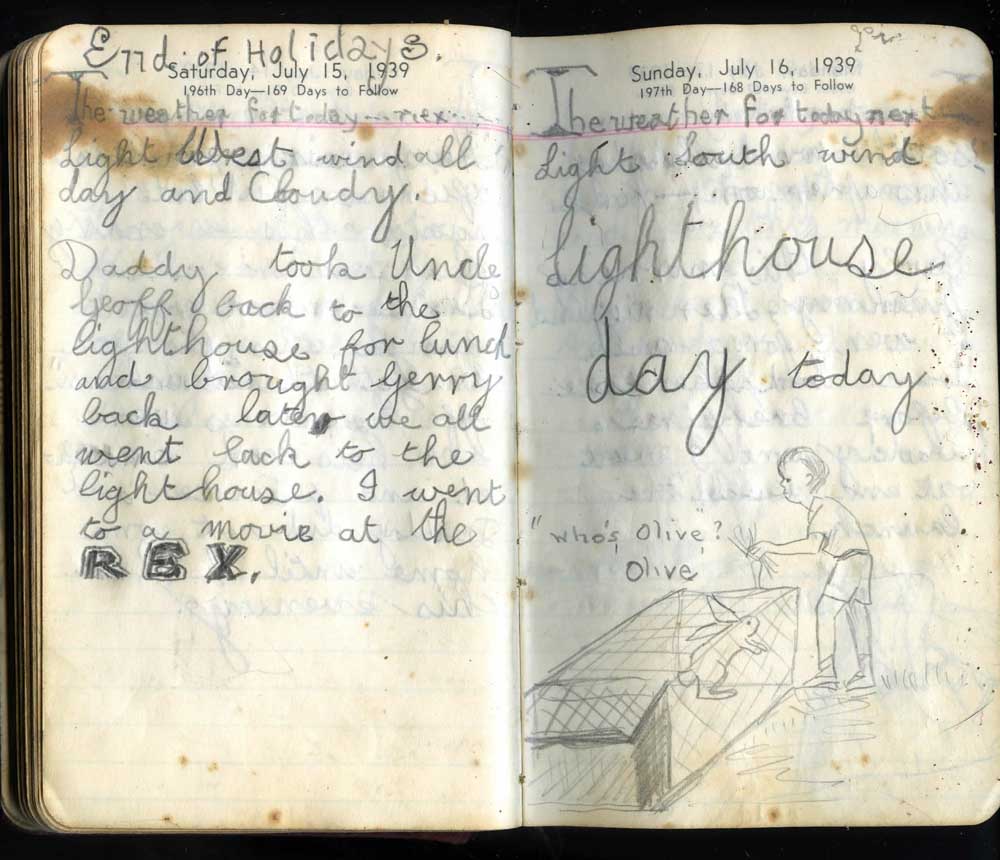 End of Holidays.
Saturday, July 15, 1939
196th Day—169 Days to Follow
The weather for today---nex...
Light West wind all
day and Cloudy.
Daddy took Uncle
Geoff back to the
lighthouse for lunch
and brought Gerry
back later we all
went back to the
lighthouse. I went
to a movie at the
REX.
Sunday, July 16, 1939
197th Day—168 Days to Follow
The weather for today next
Light South wind
Lighthouse
day today.
"who's Olive"?
Olive